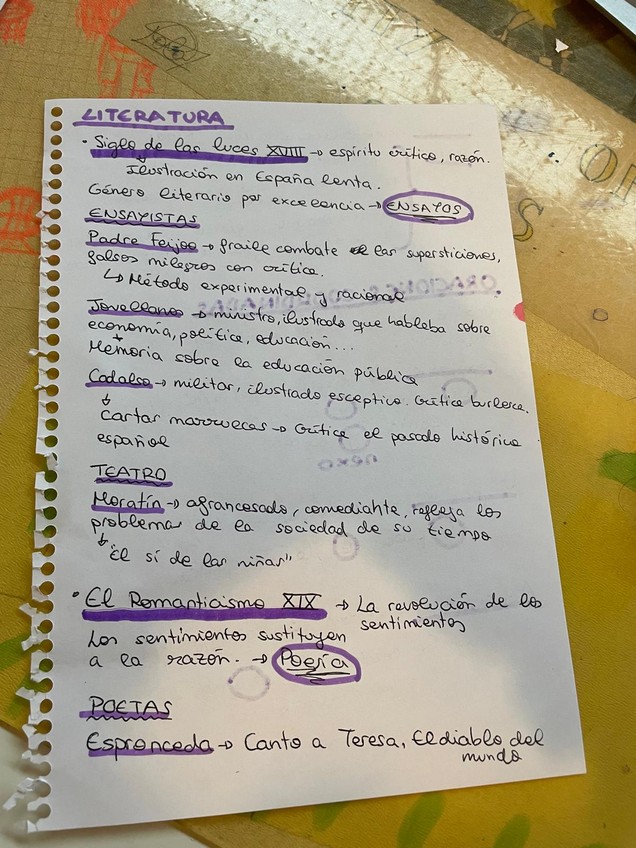 LITERATURA
· Siglo de las luces XVIII → espíritu crítico, razón.
Ilustración en España lenta.
Género literario por excelencia → ENSAYOS
ENSAYISTAS
Padre Feijoo → fraile combate las supersticiones,
falsos milagros con crítica.
↳ Método experimental y racional
Jovellanos → ministro, ilustrado que hablaba sobre
economía, política, educación...
↓
Memoria sobre la educación pública
Cadalso → militar, ilustrado esceptico. Crítica burlesca.
↓
Cartas marruecas → Crítica el pasado histórico
español
TEATRO
Moratín → afrancesado, comediante, refleja los
problemas de la sociedad de su tiempo
↓
"El sí de las niñas"
· El Romanticismo XIX → La revolución de los
sentimientos
Los sentimientos sustituyen
a la razón. → Poesía
POETAS
Espronceda → Canto a Teresa, El diablo del
mundo